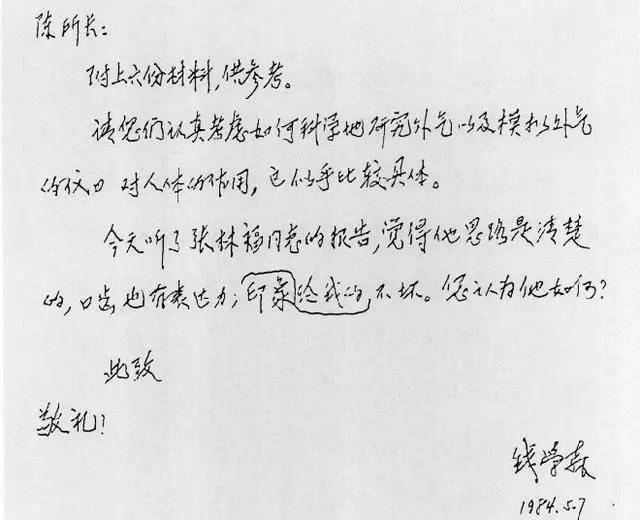 陈所长：
附上六份材料，供参考。
请您们认真考虑如何科学地研究外气以及模拟外气
的仪器对人体的作用，它似乎比较具体。
今天听了张林福同志的报告，觉得他思路是清楚
的，口齿也有表达力；印象给我的，不坏。您认为他如何？
此致
敬礼！
钱学森
1984.5.7